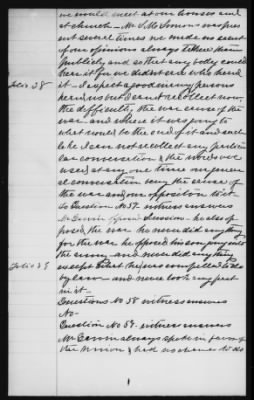 we would meet at our houses and
at church - Mr. was pres
ent several times we made no secret
of our opinions always talked them
publicly and so that any body could
hear it for we didnt care who heard
Folio 38
it - I expect a good many persons
heard us but I cannot recollect now,
the difficulty, the war cause of the
war and where it was going to
what would be the end of it and such
like I can not recollect any particu
lar conversation & the words we
used at any one time our gener
al conversation being the cause of
the war and our opposition to it
To Question No 57. witness answers
Mr Session - he also op
posed the war he never did anything
for the war he opposed his son going into
the army and never did anything
Folio 39
except what he was compelled to do
by law and never took any part
in it -
Questions No 58 witness answers
No -
Question No 59. witness answers
Mr always spoke in favor of
the Union & had no chance to do